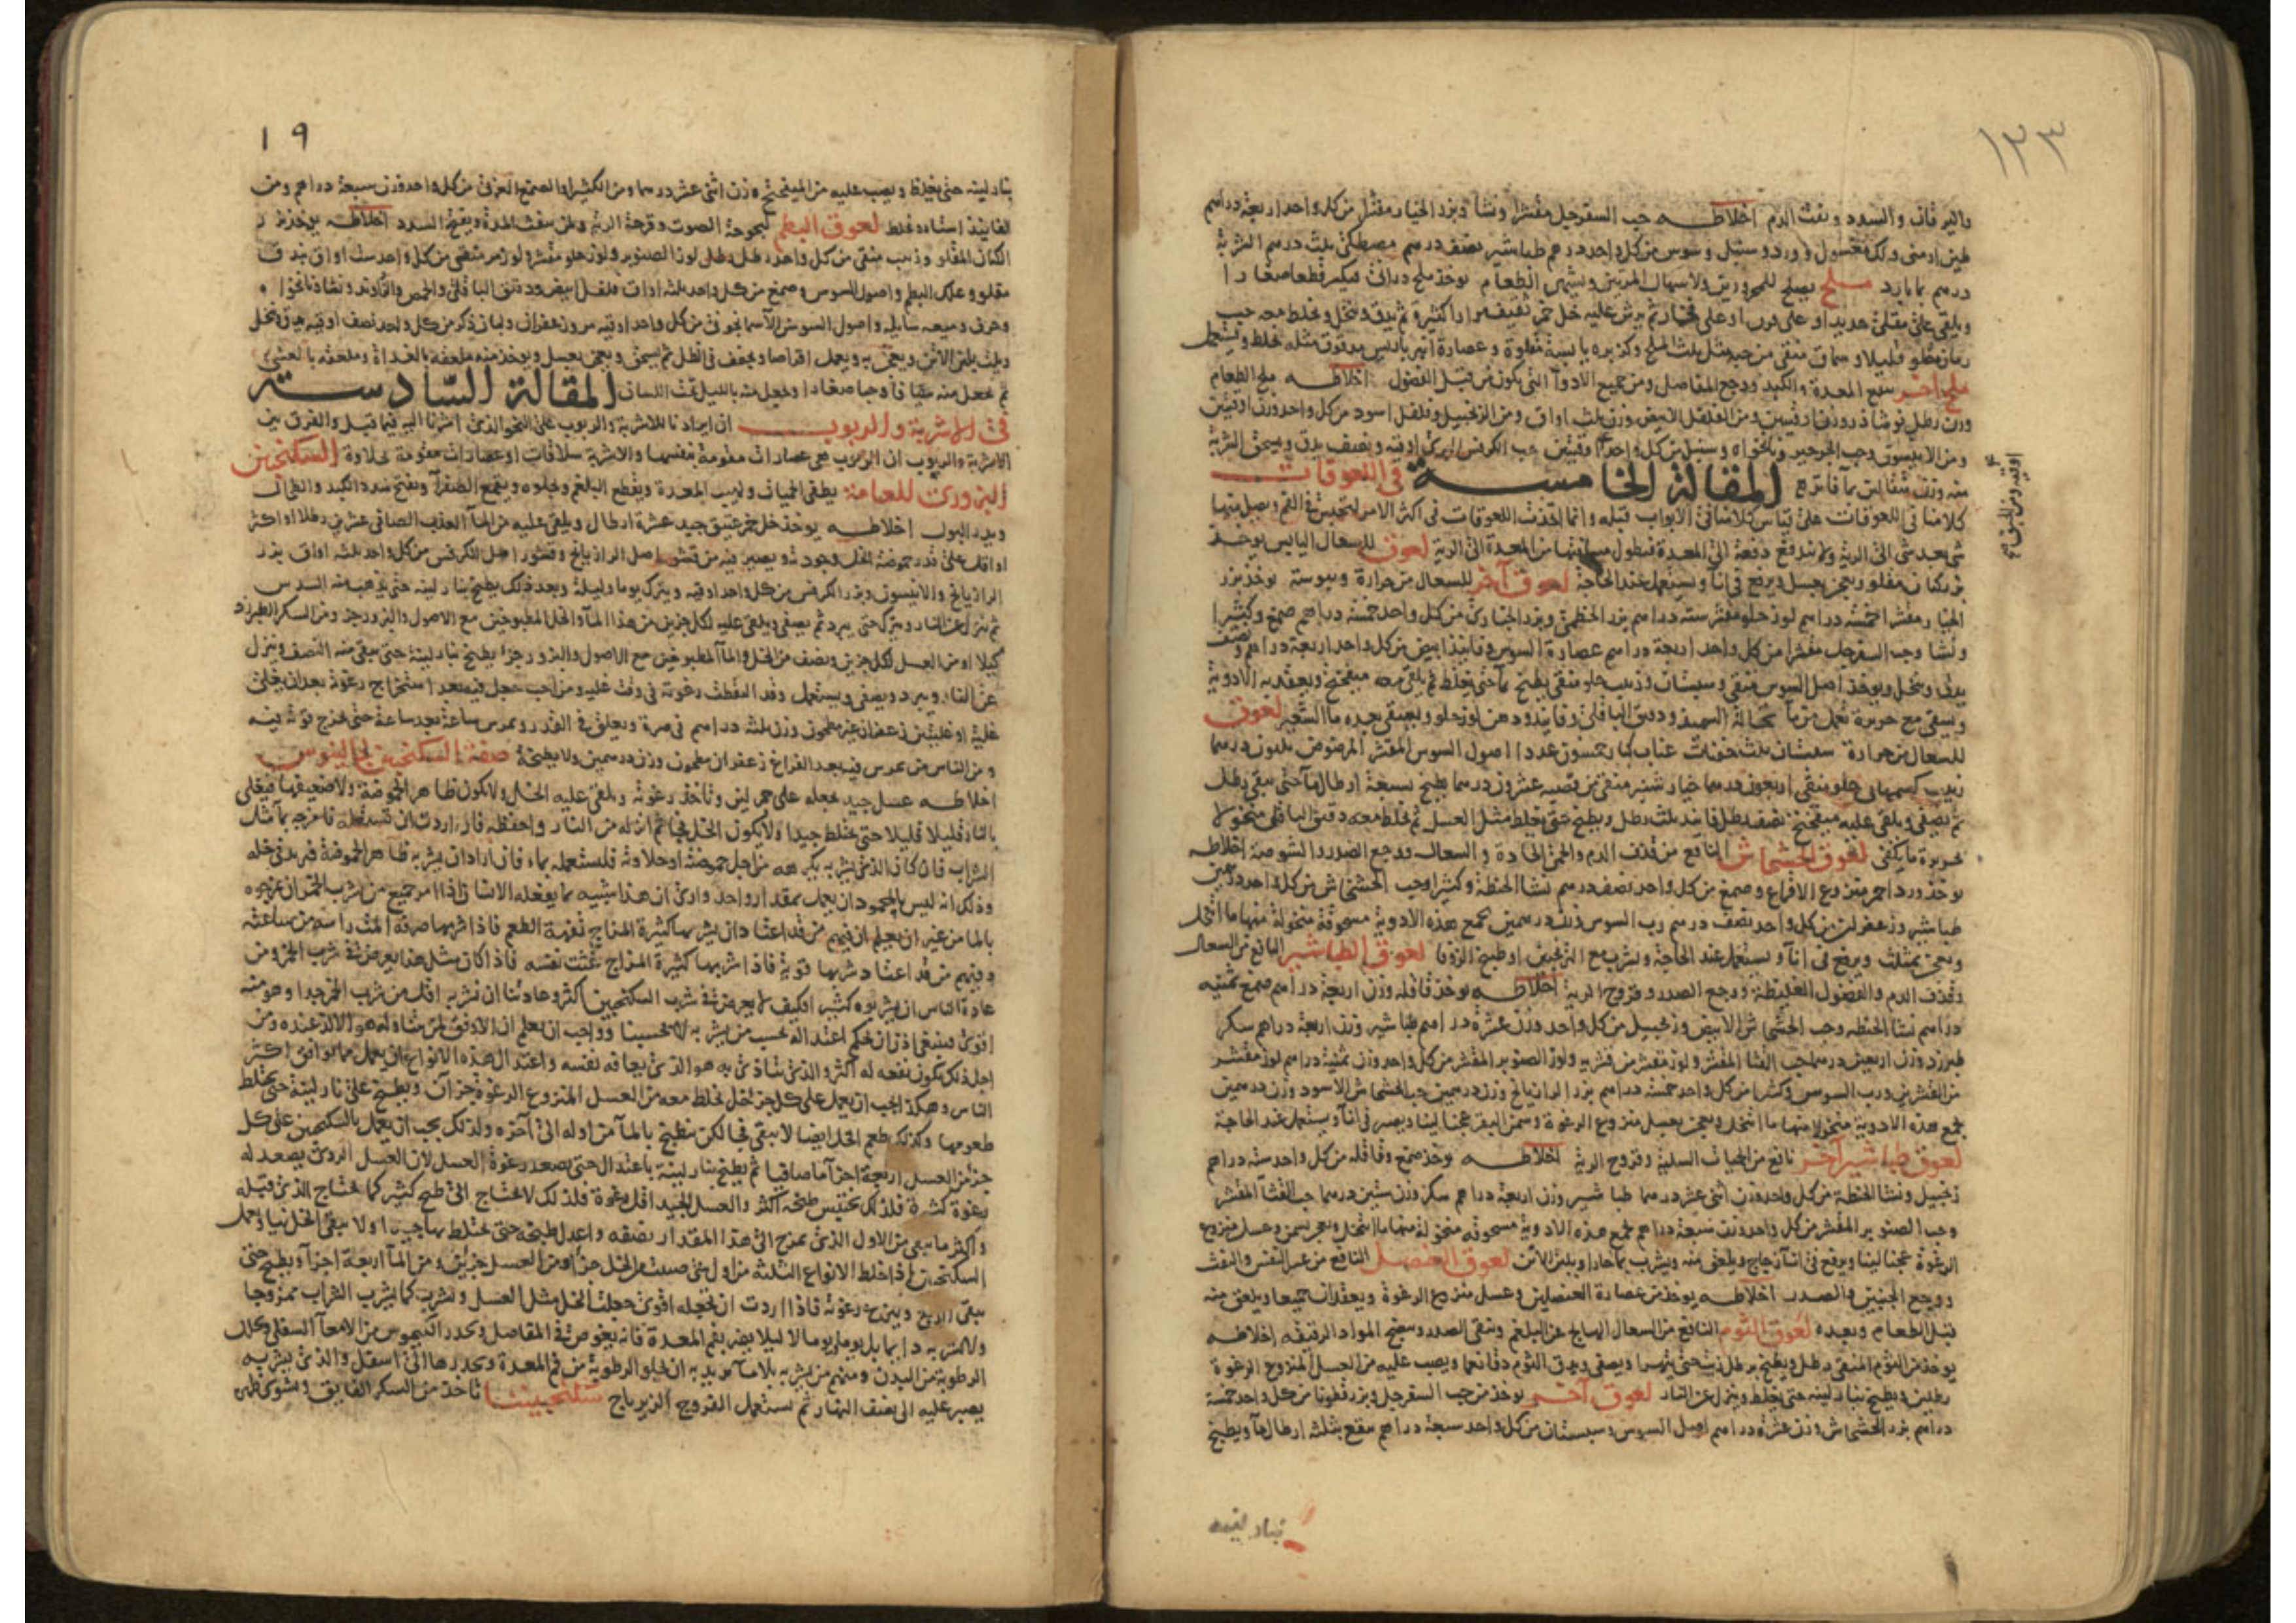 ١٣٣
واليرقان والسدد ونفث الدم اخلاطه حب السفرجل مقشرا ونشا وبزر الخيار مقشر من كل واحد اربعة دراهم
طين ارمنى ولك مغسول وورد وسنبل وسوس من كل واحد درهم طباشير نصف درهم مصطكى ثلث درهم الشربة
درهم بماء بارد ملح يصلح للمحرورين ولاسهال المزمن ويشهى الطعام يوخذ ملح درانى فيكسر قطعا صغارا
ويلقى على مقلى حديد او على فخار ثم يرش عليه خل خمر ثقيف مرارا كثيرة ثم يدق وينخل ويخلط معه حب
رمان مقلو قليلا وسماق منقى من حبه مثل ثلث الملح وكزبره يابسة مقلوة وعصارة امبرباريس مدقوق مثله يخلط ويستعمل
ملح اخر ينفع المعدة والكبد ووجع المفاصل ومن جميع الادوآ التى يكون من قبل الفضول اخلاطه ملح الطعام
وزن رطل نوشاذر وزن اوقيتين ومن الفلفل الابيض وزن ثلث اواق ومن الزنجبيل وفلفل اسود من كل واحد وزن اوقيتين
ومن الانيسون وحب الجرجير ونانخواه وسنبل من كل واحد اوقيتين حب الكرفس اوقيه ونصف يدق ويسحق الشربة
منه وزن مثقالين بماء فاتر المقالة الخامسة فى اللعوقات
كلامنا فى اللعوقات على قياس كلامنا فى الابواب قبله وانما اتخذت اللعوقات فى اكثر الامر لتحبس فى الفم ويصل منها
شى بعد شى الى الرية ولا تندفع دفعة الى المعدة فيطول مسافتها من المعدة الى الرية لعوق للسعال اليابس يوخذ
بزر كتان مقلو ويعجن بعسل ويرفع فى انآ ويستعمل عند الحاجة لعوق آخر للسعال من حرارة ويبوسة يوخذ بزر
الخيار مقشرا خمسة دراهم لوز حلو مقشر ستة دراهم بزر الخطمى وبزر الخبازى من كل واحد خمسة دراهم صمغ وكثيرا
ونشا وحب السفرجل مقشرا من كل واحد اربعة دراهم عصارة السوس وفانيذ ابيض من كل واحد اربعة دراهم ونصف
يدق وينخل ويوخذ اصل السوس منقى وسبستان وزبيب حلو منقى يطبخ بمآ حتى يغلظ ثم يلقى معه ميفختج ويعقد به الادوية
ويسقى مع حريرة تعمل من مآ نخالة السميد ودقيق الباقلى وفانيذ ودهن لوز حلو ويسقى بعده ماء الشعير لعوق
للسعال من حرارة سبستان ثلث حفنات عناب كبار خمسون عددا اصول السوس المقشر المرضوض ثلثون درهما
زبيب حلو منقى اربعون درهما خيار شنبر منقى من قصبه عشرون درهما يطبخ بسبعة ارطال مآ حتى يبقى رطل
ثم يصفى ويلقى عليه ميفختج نصف رطل فانيذ ثلث رطل ويطبخ حتى يغلظ مثل العسل ثم يخلط معه دقيق الباقلى منخولا
بحريرة ما يكفى لعوق الخشخاش النافع من قذف الدم والحمى الحادة والسعال ووجع الصدر والشوصة اخلاطه
يوخذ ورد احمر منزوع الاقماع وصمغ من كل واحد نصف درهم نشا الحنطة وكثيرا وحب الخشخاش من كل واحد درهمين
طباشير وزعفران من كل واحد نصف درهم رب السوس وزن درهمين يجمع هذه الادوية مسحوقة منخولة منها ما انتخل
ويعجن بمثلث ويرفع فى انآ ويستعمل عند الحاجة ويشرب مع الترنجبين او طبيخ الزوفا لعوق الطباشير النافع من السعال
وقذف الدم والفضول الغليظة ووجع الصدر وقروح الرية اخلاطه يوخذ قاقله وزن اربعة دراهم صمغ ثمنيه
دراهم نشا الحنطه وحب الخشخاش الابيض وزنجبيل من كل واحد وزن عشرة دراهم طباشير وزن اربعة دراهم سكر
طبرزد وزن اربعين درهما حب القثا المقشر ولوز مقشر من قشريه ولوز الصنوبر المقشر من كل واحد وزن ثمنية دراهم لوز مقشر
من القشرين ورب السوس وكثيرا من كل واحد خمسة دراهم بزر الرازيانج وزن درهمين حب الخشخاش الاسود وزن درهمين
يجمع هذه الادوية منخولا منها ما انتخل ويعجن بعسل منزوع الرغوة وسمن البقر عجنا لينا ويصير فى انآ ويستعمل عند الحاجة
لعوق طباشير آخر نافع من الحميات السليه وقروح الرية اخلاطه يوخذ صمغ وقاقله من كل واحد ستة دراهم
زنجبيل ونشا الحنطة من كل واحد وزن اثنى عشر درهما طباشير وزن اربعة دراهم سكر وزن ستين درهما حب القثآ المقشر
وحب الصنوبر المقشر من كل واحد وزن سبعة دراهم يجمع هذه الادوية مسحوقه منخولة منها ما انتخل ويعجن بسمن وعسل منزوع
الرغوة عجنا لينا ويرفع فى انآ زجاج ويلعق منه ويشرب بماء حار او بلبن الاتن لعوق العنصل النافع من عسر النفس والنفث
ووجع الجنبين والصدر اخلاطه يوخذ من عصارة العنصلين وعسل منزوع الرغوة ويعقدان جميعا ويلعق منه
قبل الطعام وبعده لعوق الثوم النافع من السعال الهايج عن البلغم وينقى الصدر وينضج المواد الرقيقه اخلاطه
يوخذ من الثوم المنقى رطل ويطبخ برطل زيت حتى يتهرا ويصفى ويدق الثوم دقا ناعما ويصب عليه من العسل المنزوع الرغوة
رطلين ويطبخ بنار لينه حتى يغلظ وينزل عن النار لعوق آخر يوخذ من حب السفرجل وبزر قطونا من كل واحد خمسة
دراهم بزر الخشخاش وزن عشرة دراهم اصل السوس وسبستان من كل واحد سبعة دراهم ينقع بثلثة ارطال مآ ويطبخ
بنار لينه
١٩
بنار لينه حتى يغلظ ويصب عليه من الميفختج وزن اثنى عشر درهما ومن الكثيرا والصمغ العربى من كل واحد وزن سبعة دراهم ومن
الفانيذ لعوق البطم لبحوحة الصوت وقرحة الرية ولمن ينفث المدة ويفتح السدد اخلاطه يوخذ بزر
الكتان المقلو وزبيب منقى من كل واحد رطل رطل لوز الصنوبر ولوز حلو مقشر ولوز مر منقى من كل واحد ست اواق بندق
مقلو وعلك البطم واصول السوس وصمغ من كل واحد ثلثة اواق فلفل ابيض ودقيق الباقلى والحمص والراوند ونشا ونانخواه
وحرف وميعه سايله واصول السوس الآسمانجونى من كل واحد اوقيه مر وزعفران ولبان ذكر من كل واحد نصف اوقيه يدق وينخل
ويلت بلبن الاتن ويعجن به ويعمل اقراصا ويجفف فى الظل ثم يسحق ويعجن بعسل ويوخذ منه ملعقة بالغداة وملعقة بالعشى
ثم يجعل منه شيافا وحبا صغارا ويجعل منه بالليل تحت اللسان المقالة السادسة
فى الاشربة والربوب ان ايرادنا للاشربة والربوب على النحو الذى اشرنا اليه فيما قبل والفرق بين
الاشربة والربوب ان الربوب هى عصارات مقومة بنفسها والاشربة سلاقات او عصارات مقومة بحلاوة السكنجبين
البزورى للعامة يطفى الحميات ولهيب المعدة ويقطع البلغم ويجلوه ويقمع الصفرآ ويفتح سدد الكبد والطحال
ويدر البول اخلاطه يوخذ خل خمر عتيق جيد عشرة ارطال ويلقى عليه من المآ العذب الصافى عشرين رطلا او اكثر
او اقل على قدر حموضة الخل وجودته ويصير فيه من قشور اصل الرازيانج وقشور اصل الكرفس من كل واحد ثلثه اواق بزر
الرازيانج والانيسون وبزر الكرفس من كل واحد اوقيه ويترك يوما وليلة وبعد ذلك يطبخ بنار لينه حتى يذهب منه السدس
ثم ينزل عن النار ويترك حتى يبرد ثم يصفى ويلقى عليه لكل جزين من هذا المآ والخل المطبوخين مع الاصول والبزور جز ومن السكر الطبرزد
كيلا او من العسل لكل جزين ونصف من الخل والمآ المطبوخين مع الاصول والبزور جزءا يطبخ بنار لينة حتى يبقى منه النصف وينزل
عن النار ويبرد ويصفى ويستعمل وقد القطت رغوته فى وقت غليه ومن احب جعل فيه بعد استخراج رغوته بعد ان يغلى
غلية او غليتين زعفران غير مطحون وزن ثلثة دراهم فى صرة ويعلق فى القدر ويمرس ساعة بعد ساعة حتى يخرج قوته فيه
ومن الناس من يمرس فيه بعد الفراغ زعفران مطحون وزن درهمين ولا يطبخه صفة السكنجبين لجالينوس
اخلاطه عسل جيد يجعله على جمر لين وتاخذ رغوته ويلقى عليه الخل ولا يكون ظاهر الحموضة ولا ضعيفها فيغلى
بالنار قليلا قليلا حتى يختلط جيدا ولا يكون الخل فجا ثم انزله من النار واحفظه فاذا اردت ان تسقيه فامزجه بمآ مثل
الشراب فان كان الذى يشربه يكرهه من اجل حموضته او حلاوته فليستعمله بماء فان اراد ان يشربه ظاهر الحموضة فيزيد فى خله
وذلك انه ليس بالمحمود ان يعمل بمقدار واحد وارى ان هذا شبيه بما يفعله الانسان اذا امر جميع من يشرب الخمر ان يمزجوه
بالما من غير ان يعلم ان فيهم من قد اعتاد ان يشربها كثيرة المزاج تفهة الطعم فاذا شربها صرفة المت راسه من ساعته
وفيهم من قد اعتاد شربها قوية فاذا شربها كثيرة المزاج غثت نفسه فاذا كان مثل هذا يعرض فى شرب الخمر ومن
عادة الناس ان يشربوه كثيرا فكيف لا يعرض فى شرب السكنجبين اكثر وعادتنا ان نشربه اقل من شرب الخمر جدا وهو منه
اقوى فينبغى اذن ان يحكم اعتداله بحسب من يشربه لا بحسبنا وواجب ان يعلم ان الاوفق لمن تناوله هو الالذ عنده ومن
اجل ذلك يكون نفعه له اكثر والذى يتاذى به هو الذى يعافه نفسه واعتدال هذه الانواع ان يعمل مما يوافق اكثر
الناس وهكذا يجب ان يعمل على كل جز خل يخلط معه من العسل المنزوع الرغوة جزآن ويطبخ على نار لينة حتى يختلط
طعومها وكذلك طعم الخل ايضا لا يبقى فجا لكن يطبخ بالمآ من اوله الى آخره ولذلك يجب ان يعمل بالسكنجبين على كل
جز من العسل اربعة اجزآ ما صافيا ثم يطبخ بنار لينة باعتدال حتى يصعد رغوة العسل لان العسل الردى يصعد له
رغوة كثيرة فلذلك يحتبس طبخه اكثر والعسل الجيد اقل رغوة فلذلك لا يحتاج الى طبخ كثير كما يحتاج الذى قبله
واكثر ما يبقى من الاول الذى يمزج الى هذا المقدار نصفه واعدل طبخه حتى يختلط بها جيدا ولا يبقى الخل نيا ويعمل
السكنجبين اذا خلط الانواع الثلثه من اول شى صيبت من الخل جزآ ومن العسل جزين ومن المآ اربعة اجزآ ويطبخ حتى
يبقى الربع وينزع رغوته فاذا اردت ان تجعله اقوى جعلت الخل مثل العسل ويشرب كما يشرب الشراب ممزوجا
ولا تشربه دايما بل يوما ويوما لا ليلا يضر بفم المعدة فانه يغوص فى المفاصل ويحدر الكيموس من الامعآ السفلى وكل
الرطوبة من البدن ومنهم من يشربه بلا مآ يريد به ان يجلو الرطوبة من فم المعدة ويحدرها الى اسفل والذى يشربه
يصبر عليه الى نصف النهار ثم يستعمل الفروج الزيرباج سكنجبين تاخذ من السكر الفايق